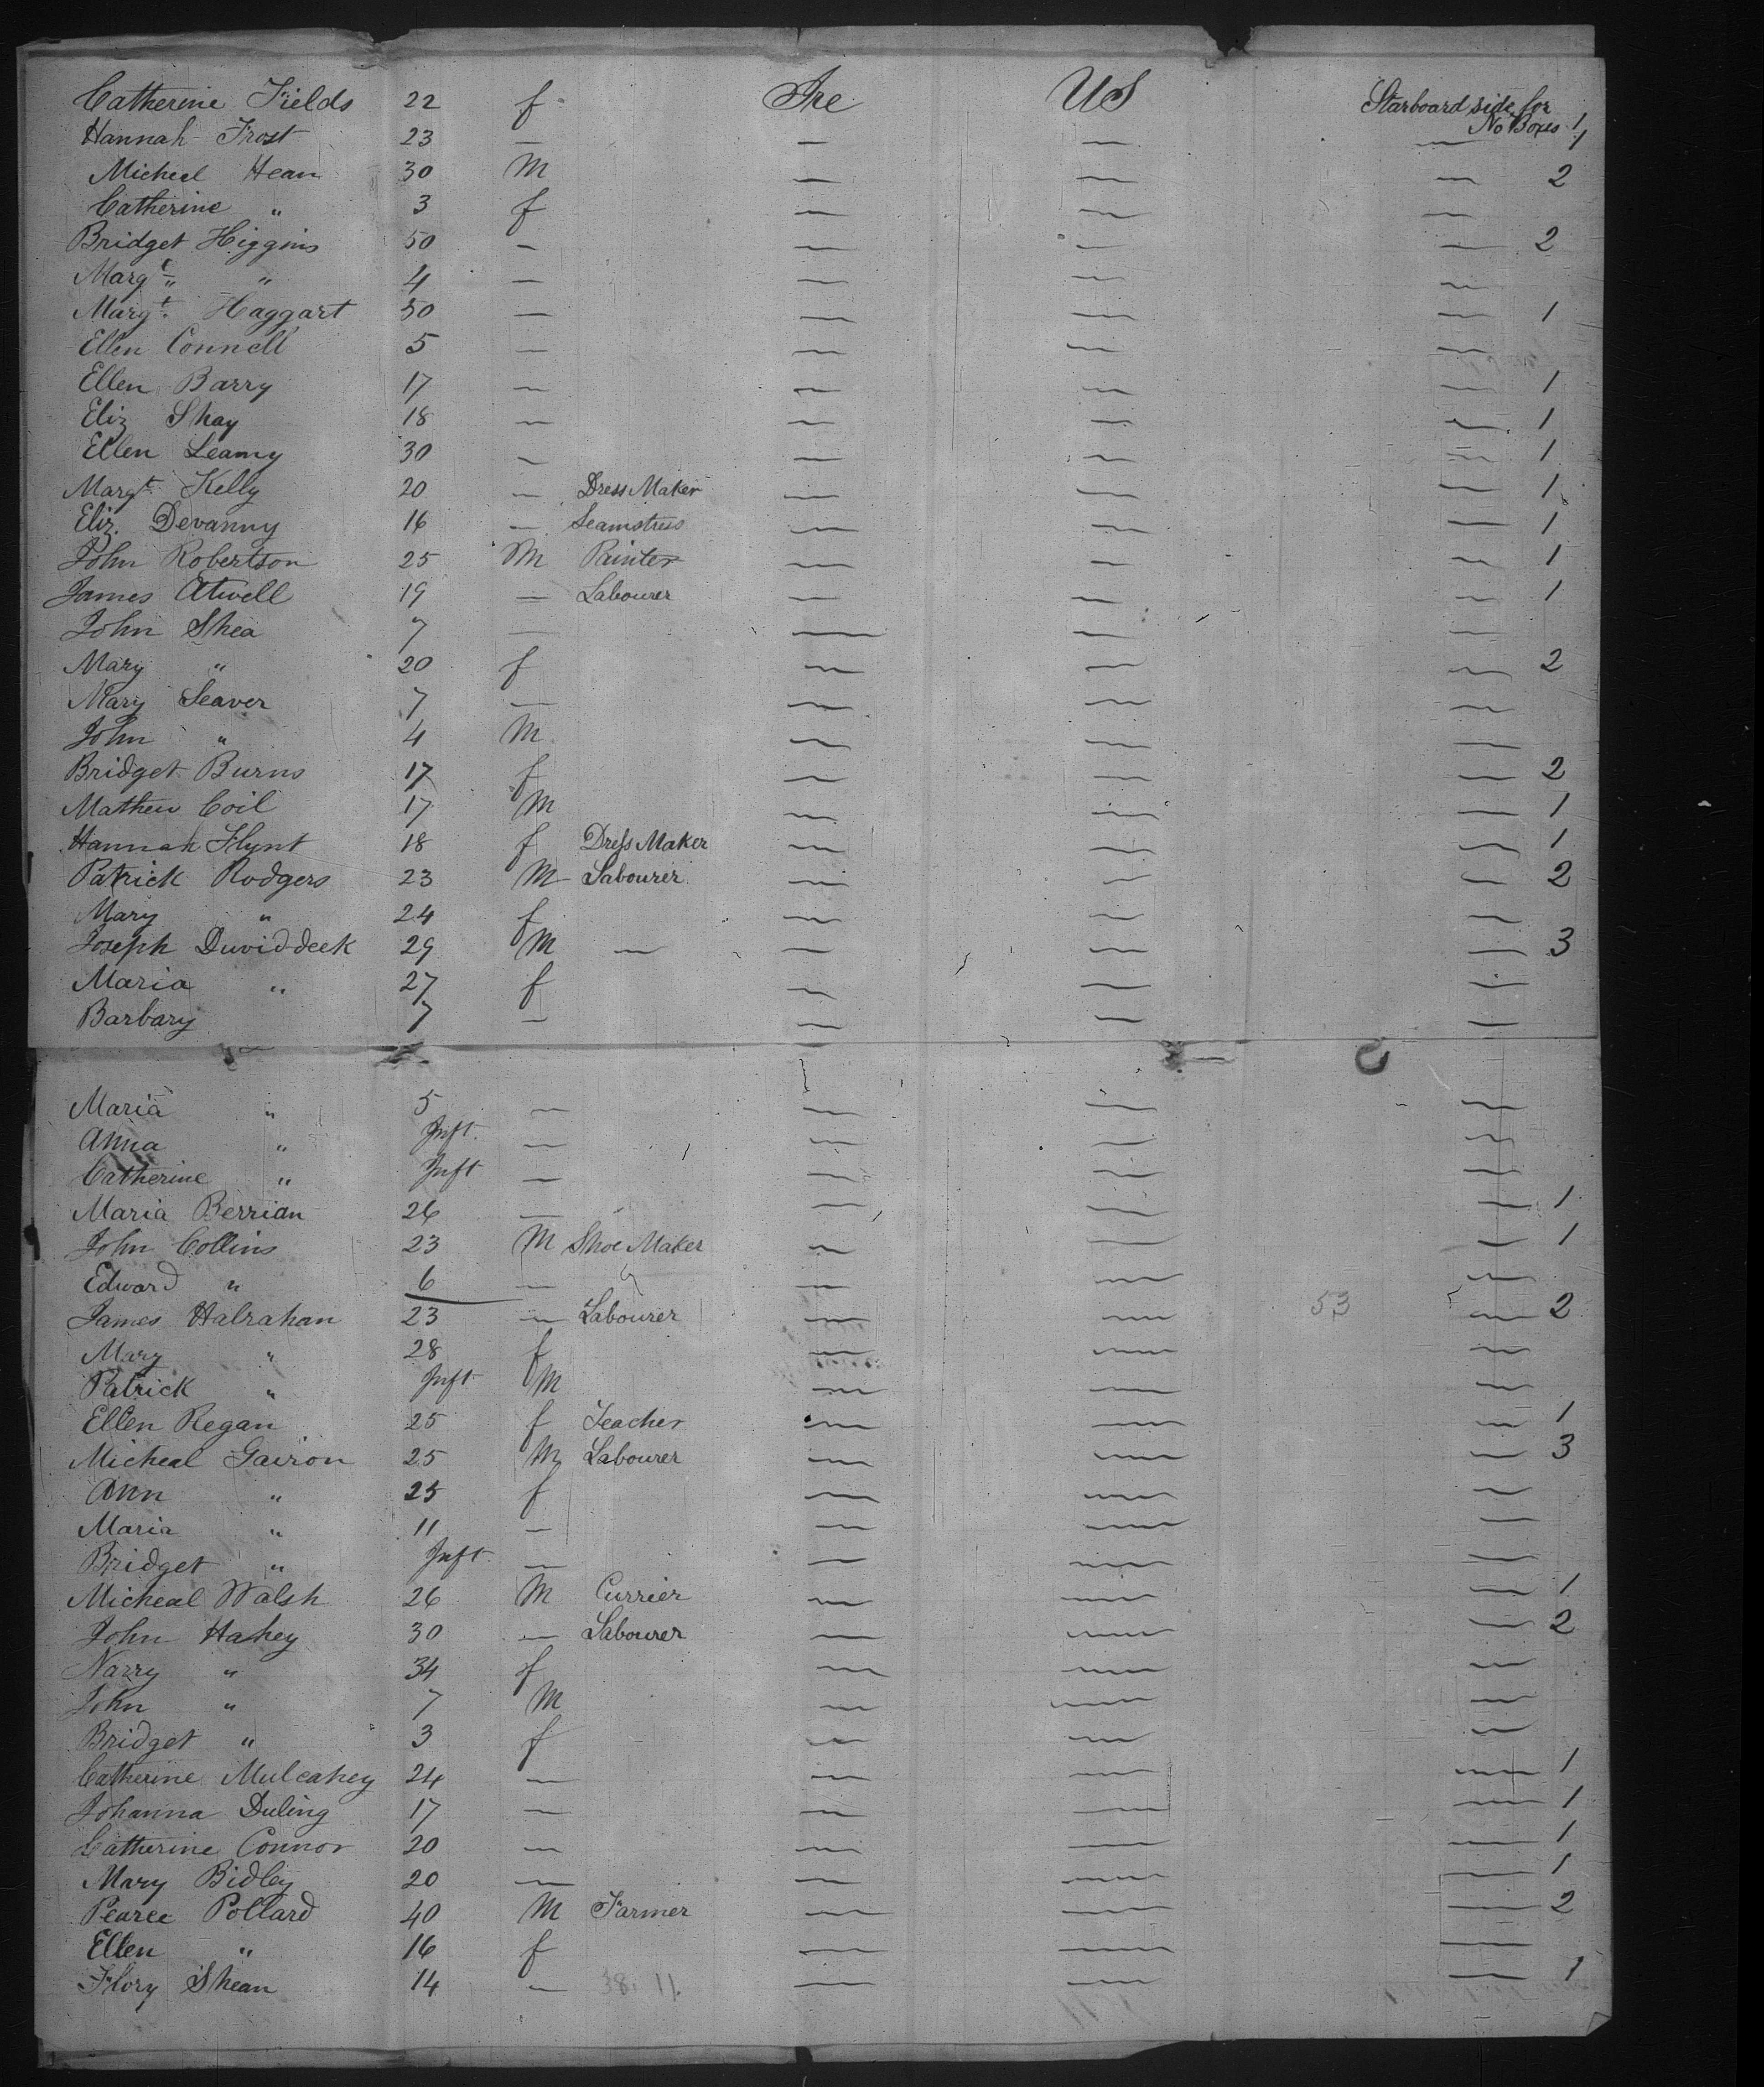 Catherine Fields 22 f Ire US Starboard side for
No Boxes 1
Hannah Frost 23 — — — — 1
Micheal Hean 30 M — — — 2
Catherine " 3 f — — —
Bridget Higgins 50 — — — — 2
Margt " " 4 — — — —
Margt. Haggart 50 — — — — 1
Ellen Connell 5 — — — —
Ellen Barry 17 — — — — 1
Eliz Shay 18 — — — — 1
Ellen Leamy 30 — — — — 1
Margt. Kelly 20 — Dress Maker — — — 1
Eliz. Devanny 16 — Seamstress — — — 1
John Robertson 25 M Painter — — — 1
James Atwell 19 — Labourer — — — 1
John Shea 7 — — — —
Mary " 20 f — — — 2
Mary Seaver 7 — — — —
John " 4 M — — —
Bridget Burns 17 f — — — 2
Mathew Coil 17 M — — — 1
Hannah Flynt 18 f Dress Maker — — — 1
Patrick Rodgers 23 M Labourer — — — 2
Mary " 24 f — — —
Joseph Duvid-deek 29 M — — — — 3
Maria " 27 f — — —
Barbary 7 — — — —
Maria " 5 — — — —
Anna " Inft. — — — —
Catherine " Inft — — — —
Maria Berrian 26 — — — — 1
John Collins 23 M Shoe Maker — — — 1
Edward " 6 — — — —
James Halrahan 23 — Labourer — — 53 — 2
Mary " 28 f — — —
Patrick " Inft M — — —
Ellen Regan 25 f Teacher — — — 1
Micheal Gairon 25 M Labourer — — — 3
Ann " 25 f — — —
Maria " 11 — — — —
Bridget " Inft — — — —
Micheal Walsh 26 M Currier — — — 1
John Hahey 30 — Labourer — — — 2
Narry " 34 f — — —
John " 7 M — — —
Bridget " 3 f — — —
Catherine Mulcahey 24 — — — — 1
Johanna Duling 17 — — — — 1
Catherine Connor 20 — — — — 1
Mary Bidley 20 — — — — 1
Pearce Pollard 40 M Farmer — — — 2
Ellen " 16 f — — —
Flory Shean 14 — — — — 1